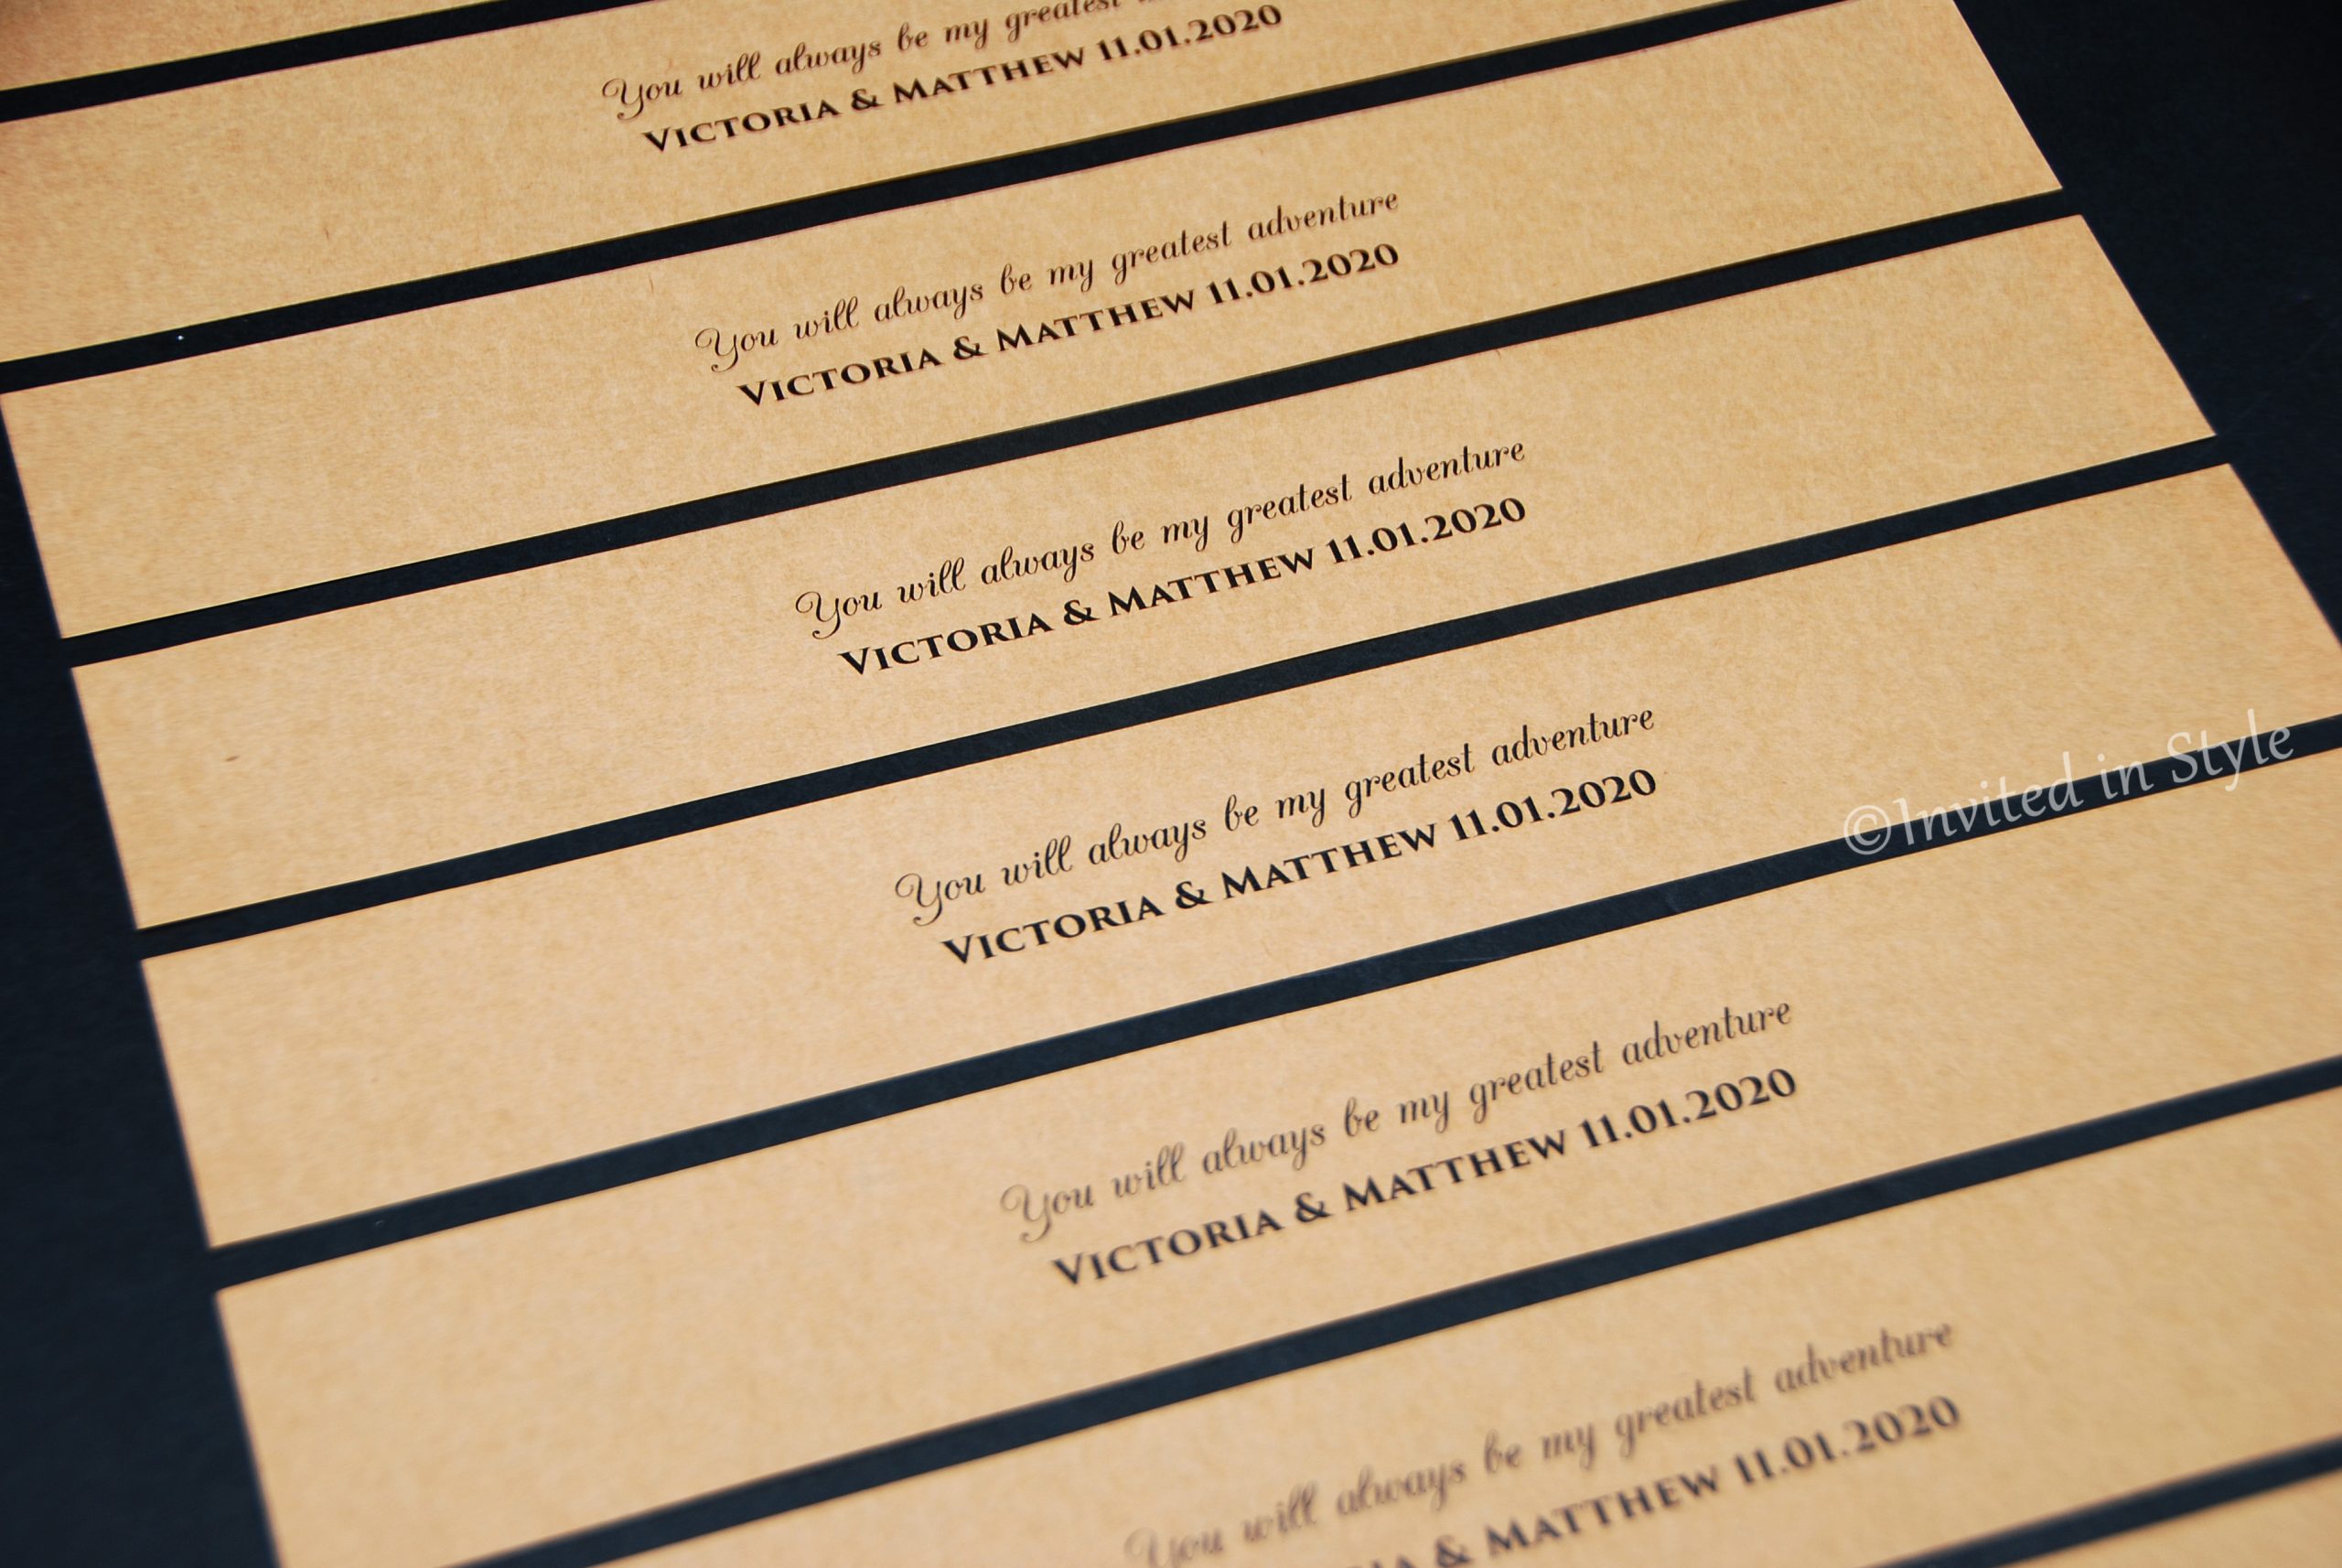 You will always be my greatest
VICTORIA & MATTHEW 11.01.2020
You will always be my greatest adventure
VICTORIA & MATTHEW 11.01.2020
You will always be my greatest adventure
VICTORIA & MATTHEW 11.01.2020
You will always be my greatest adventure
VICTORIA & MATTHEW 11.01.2020
©Invited in Style
You will always be my greatest adventure
VICTORIA & MATTHEW 11.01.2020
You will always be my greatest adventure
& MATTHEW 11.01.2020